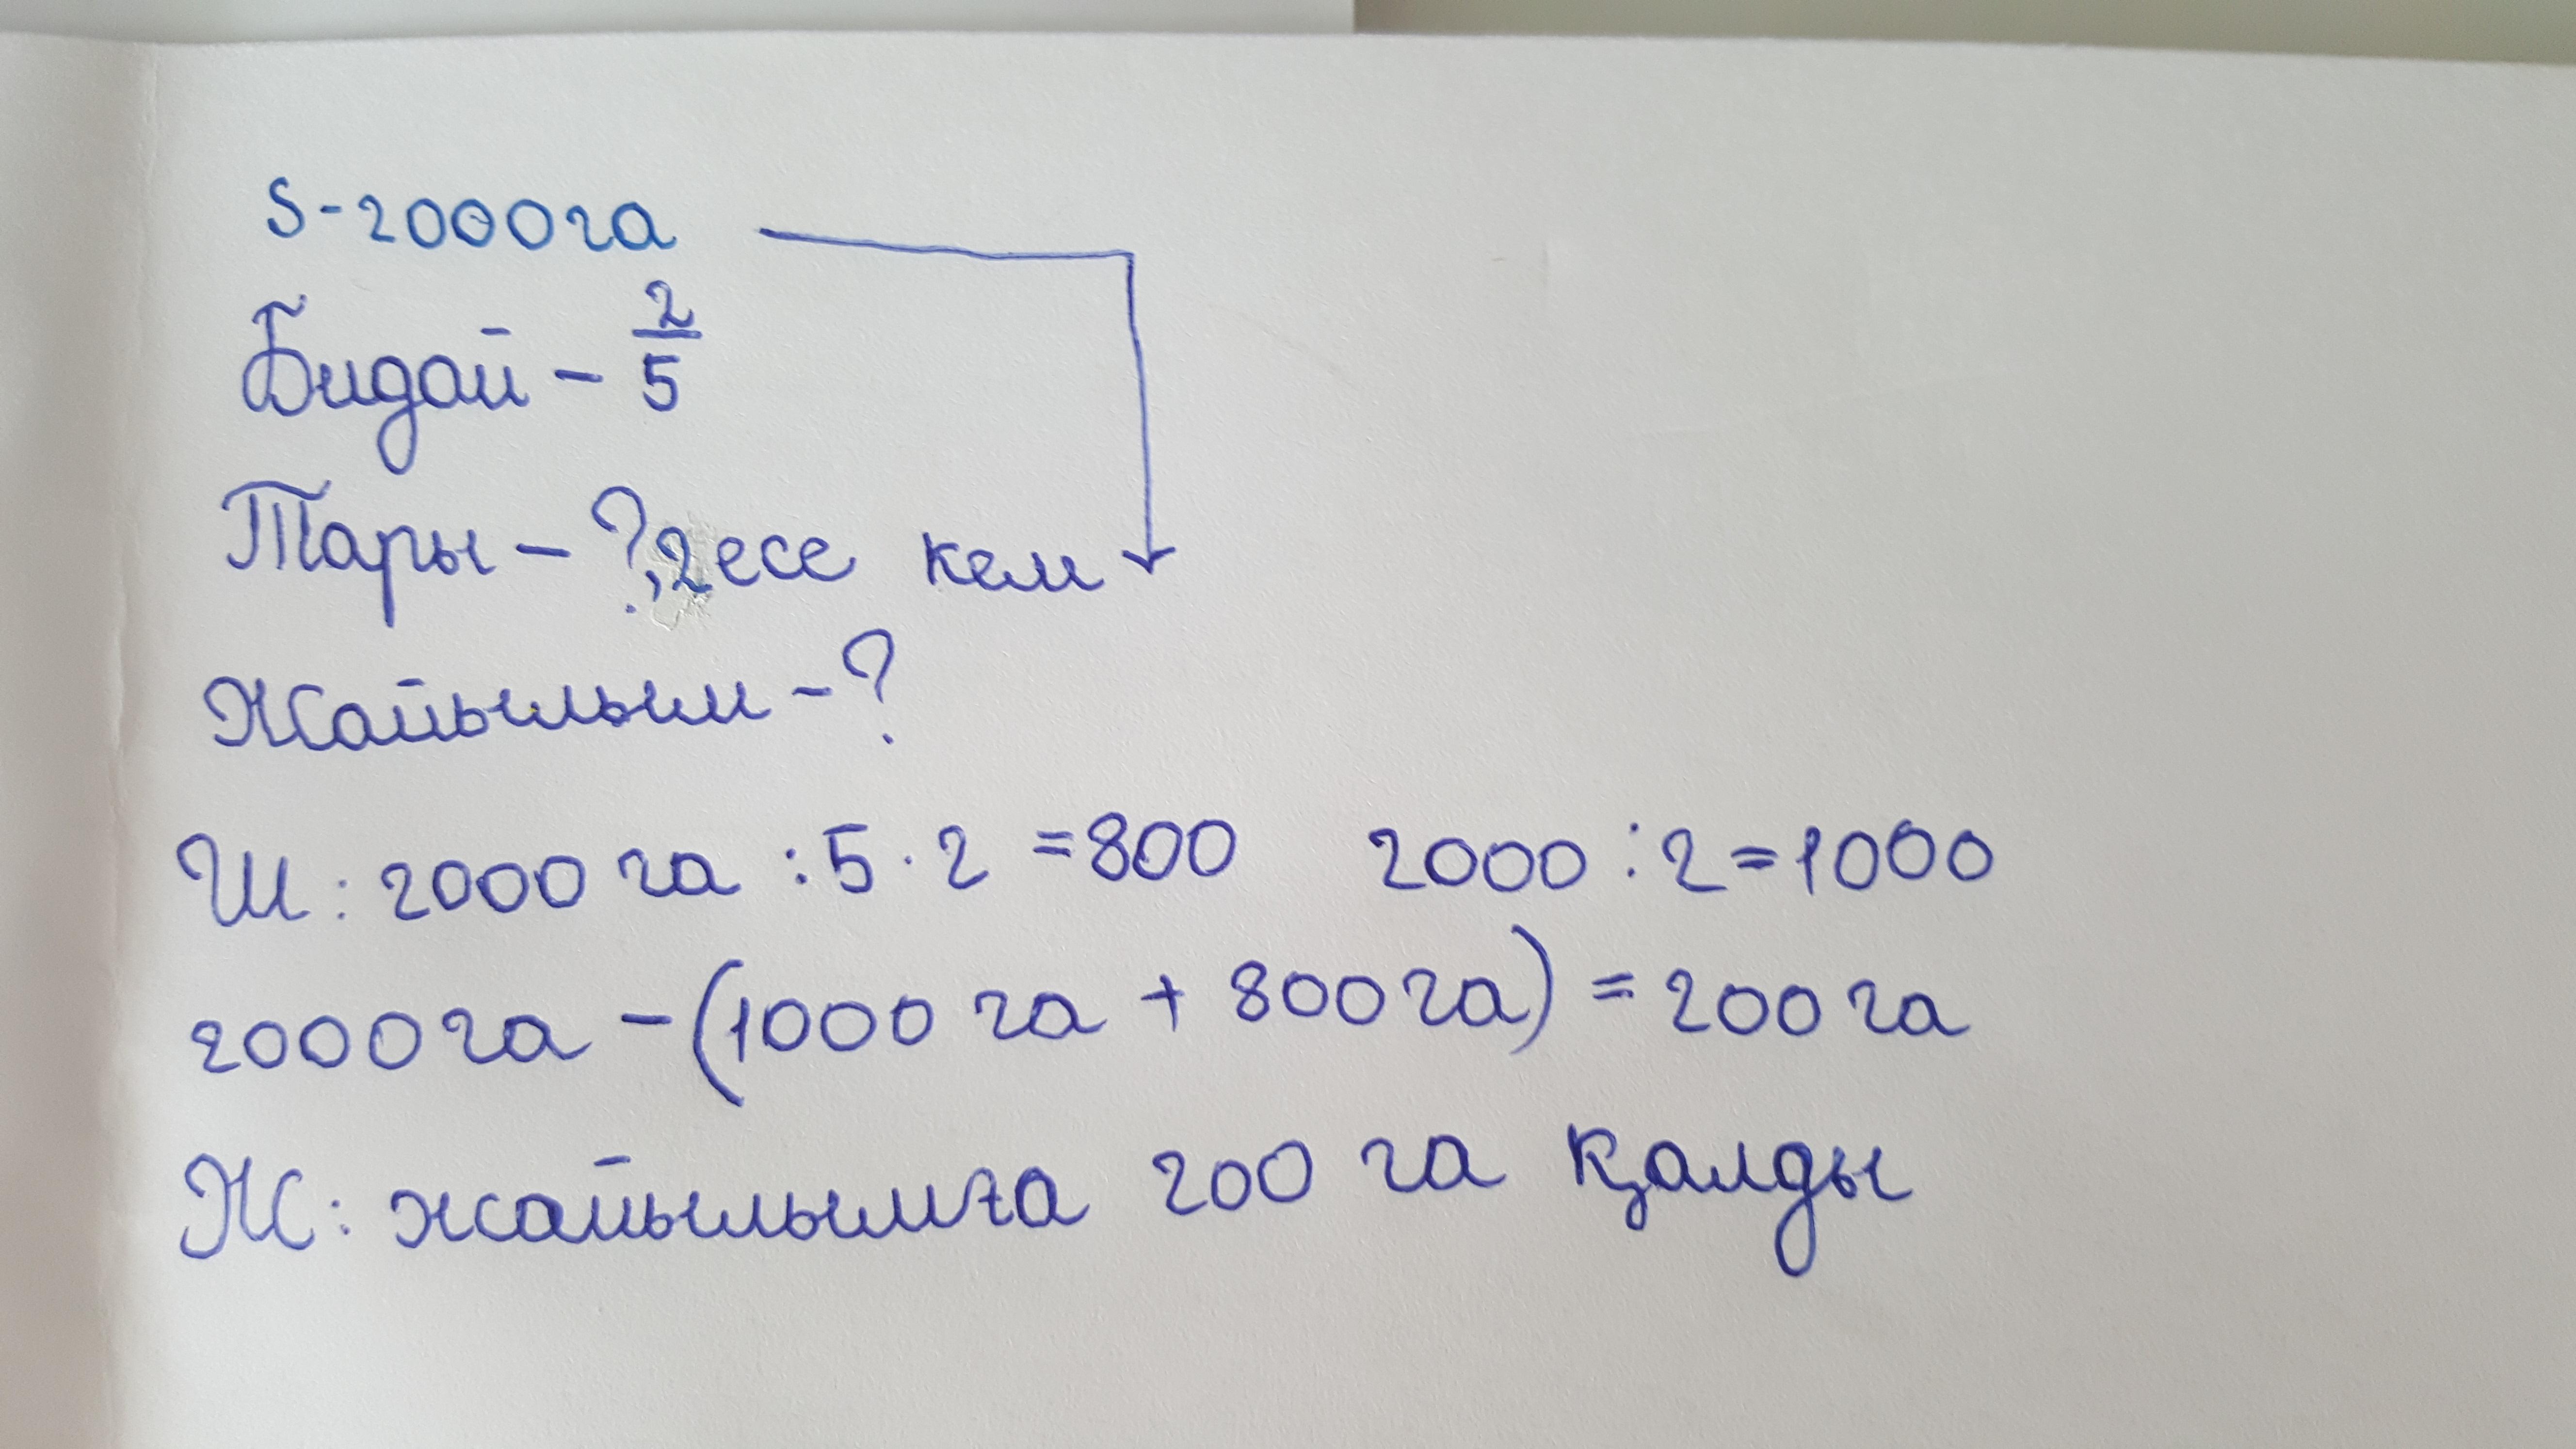 S-2000га
Бидай - 2/5
Тары - ?, 2 есе кем
Жайылым - ?
Ш: 2000 га : 5 · 2 = 800 2000 : 2 = 1000
2000 га - (1000 га + 800 га) = 200 га
Ж: жайылымға 200 га қалды